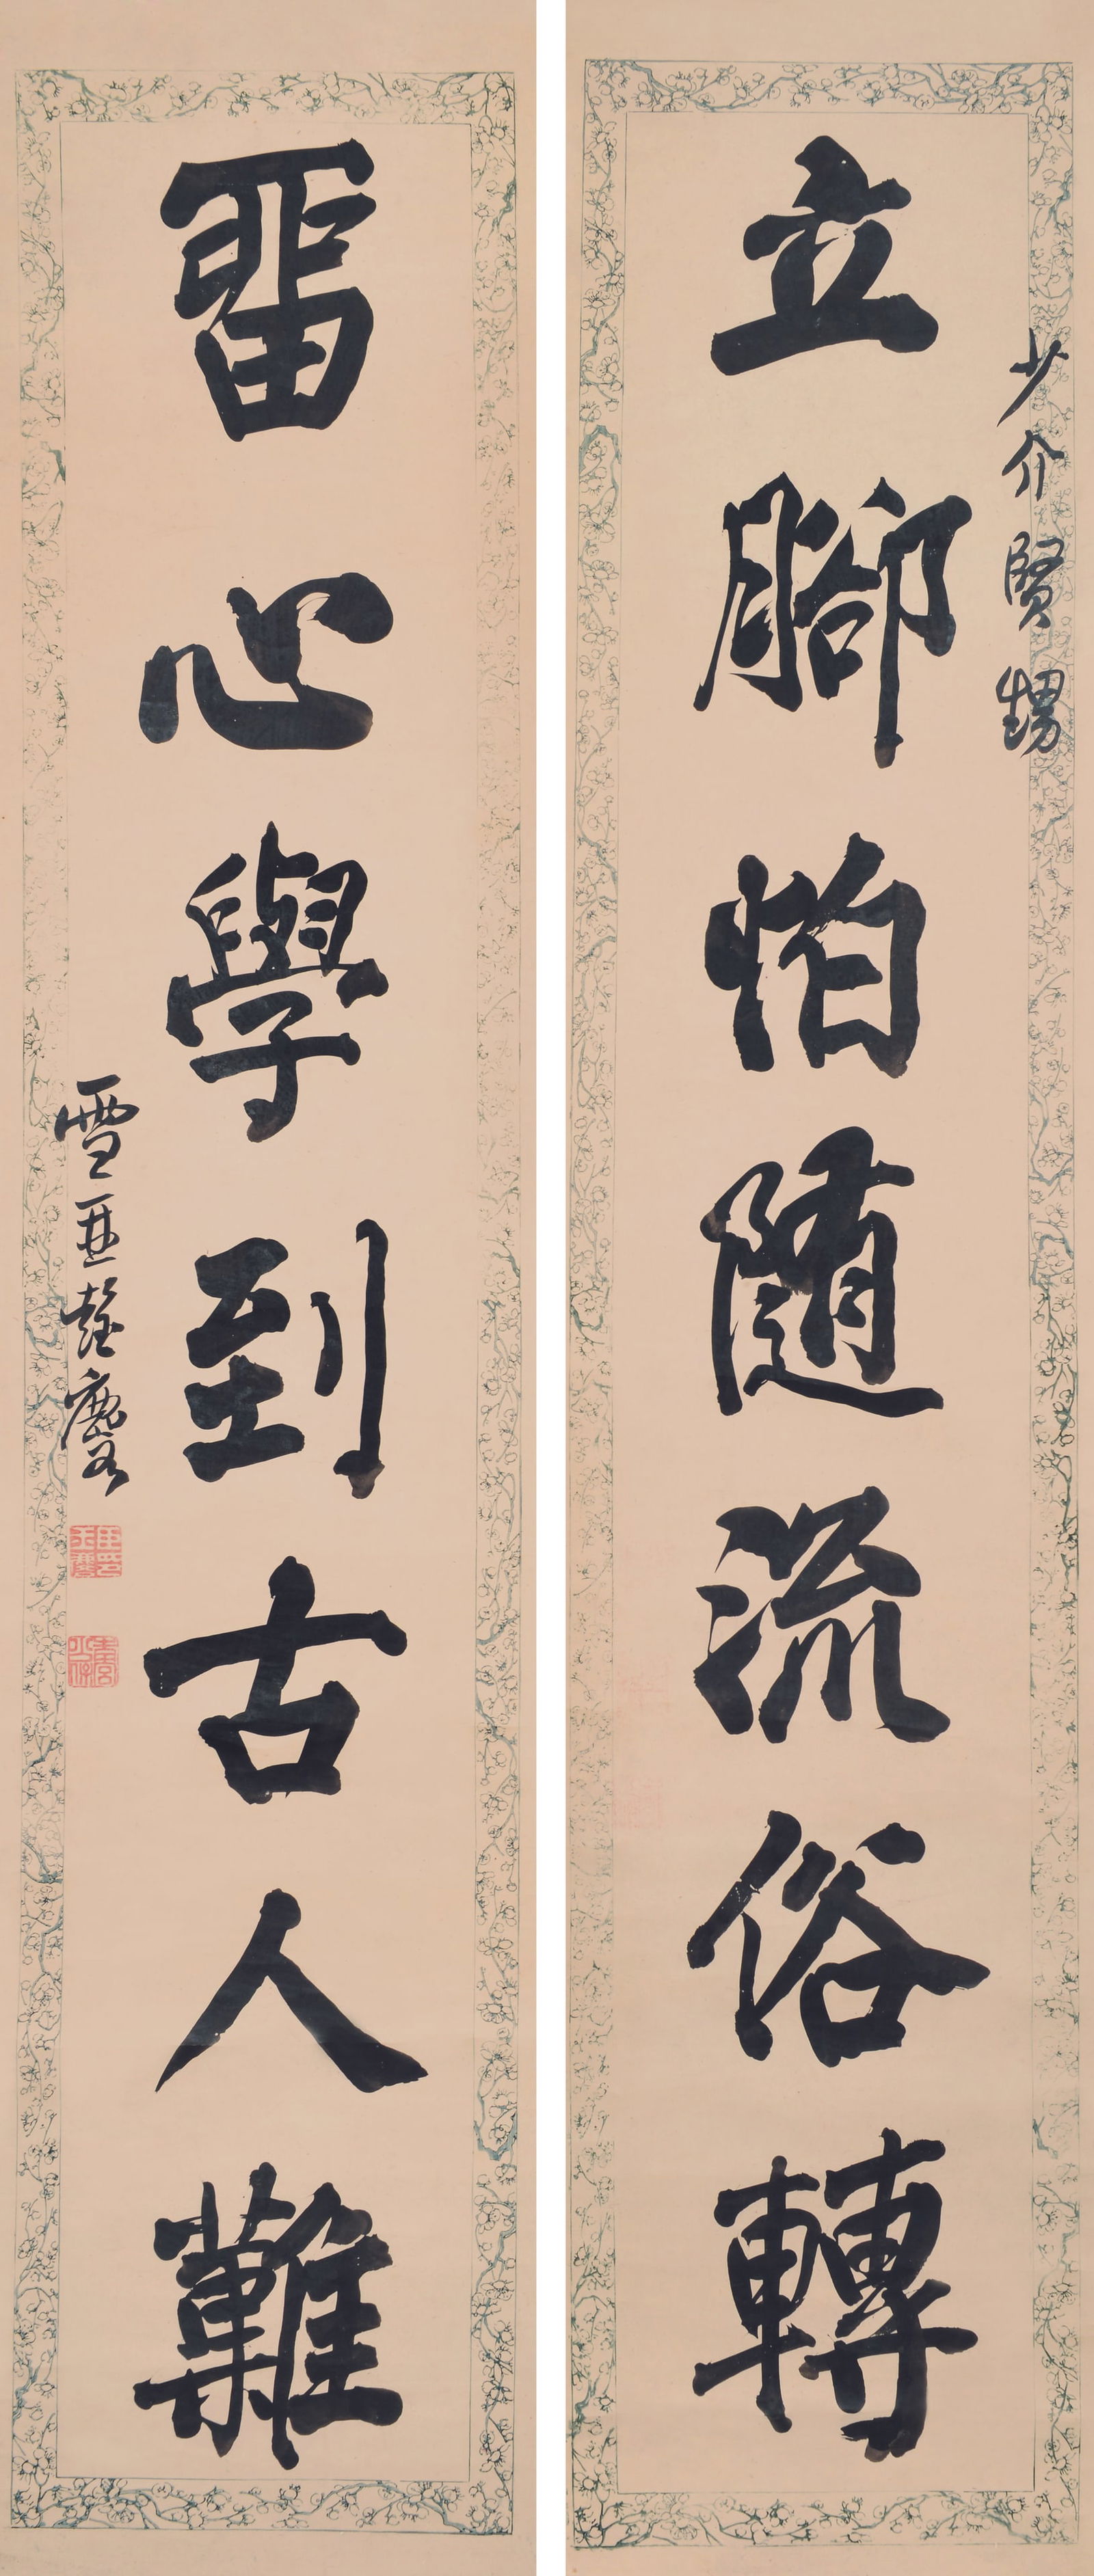 少介賢甥
立腳怕隨流俗轉
畱心學到古人難
雪